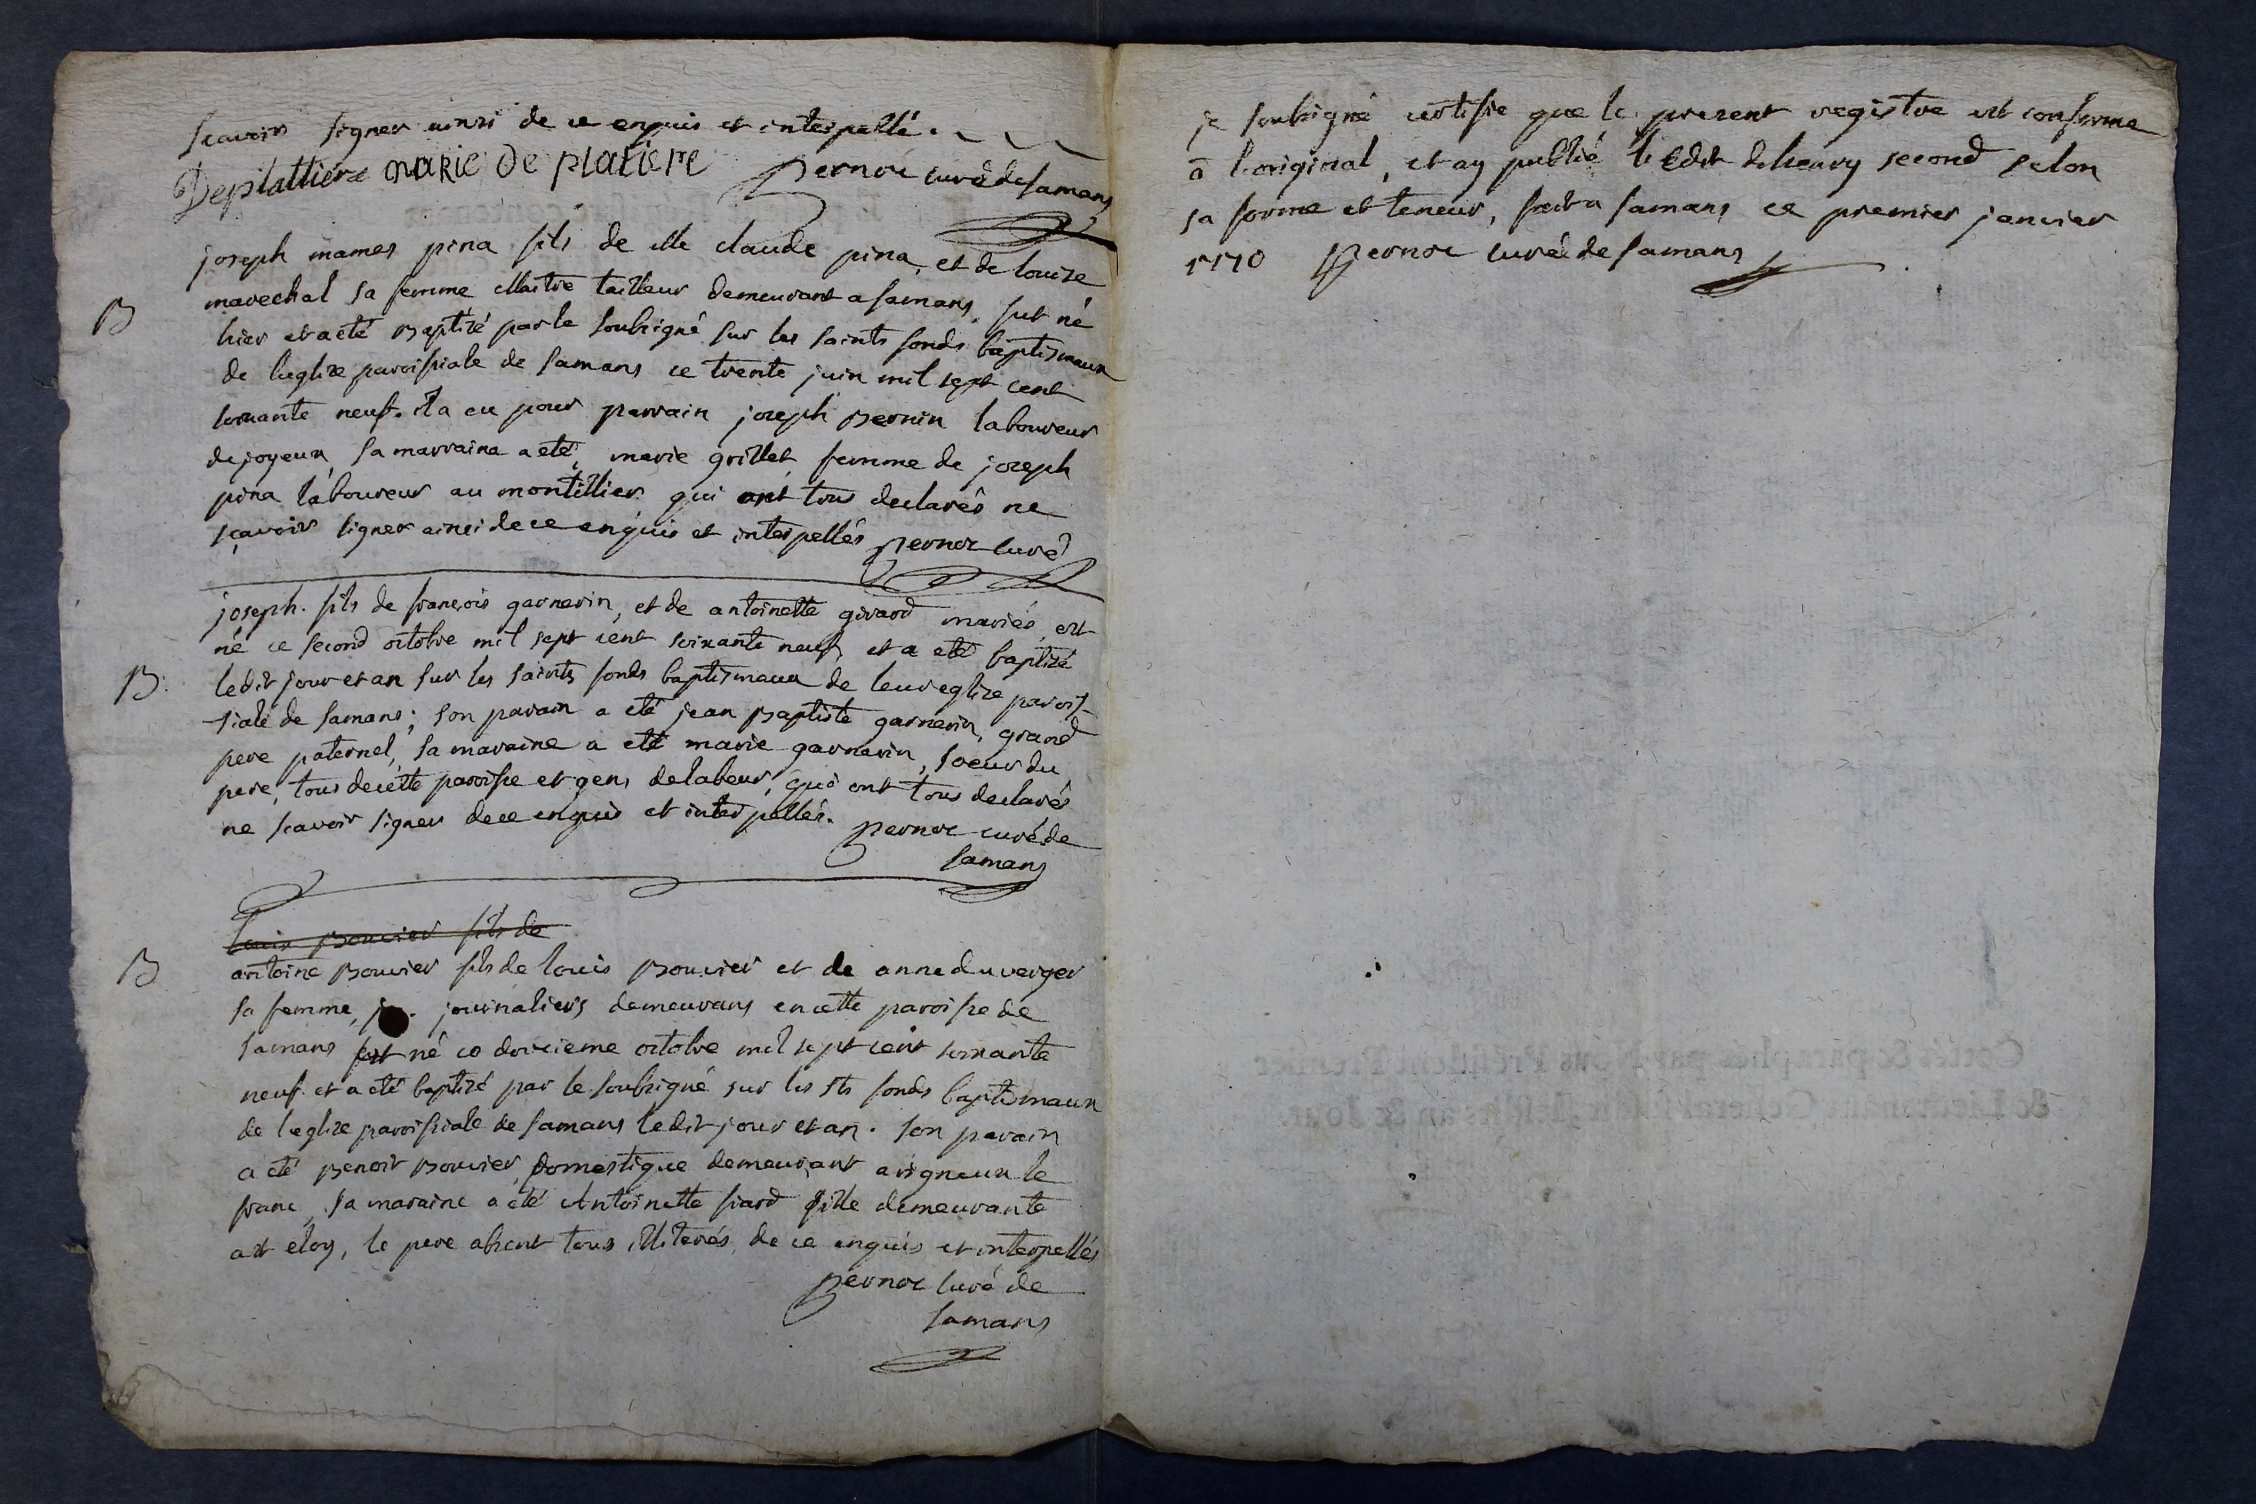 scavoir signer ainsi de ce enquis et interpellé.
Deplattiere marie de platiere pernoc curé de samans
joseph mames pina fils de Me claude pina, et de louise
marechal sa femme Maitre tailleur demeurant a samans, fut né
B
hier et a eté Baptizé par le soubsigné sur les saints fonds baptismaux
de l'eglize paroissiale de samans ce trente juin mil sept cent
soixante neuf. il a eu pour parrain joseph Bernin laboureur
de joyeux, sa marraine a eté, marie grillet femme de joseph
pina laboureur au montillier qui ont tous declarés ne
sçavoir signer ainsi de ce enquis et interpellés pernoc curé
joseph. fils de françois garnerin, et de antoinette girard mariés, est
né ce second octobre mil sept cent soixante neuf, et a eté baptizé
B.
ledit jour et an sur les saints fonds baptismaux de leur eglize parois-
-siale de samans; son parain a eté jean Baptiste garnerin, grand
pere paternel, sa maraine a eté marie garnerin, soeur du
pere, tous de cette paroisse et gens de labeur, qui ont tous declarés
ne scavoir signer de ce enquis et interpellés. pernoc curé de
samans
Louis Bouvier fils de
B
antoine Bouvier fils de louis Bouvier et de anne duverger
sa femme, journaliers demeurans en cette paroisse de
samans est né ce douzieme octobre mil sept cent soixante
neuf et a eté baptizé par le soubsigné sur les sts fonds baptismaux
de l'eglize paroissiale de samans ledit jour et an. son parain
a eté Benoit Bouvier, domestique demeurant a rigneux le
franc, sa maraine a eté Antoinette fille demeurante
a st eloy, le pere absent tous illiterés, de ce enquis et interpellés
pernoc curé de
samans
je soubsigné certifie que le present registre est conforme
a l'original, et ay publié l'Edit de henry second selon
sa forme et teneur, fait a samans ce premier janvier
1770 pernoc curé de samans